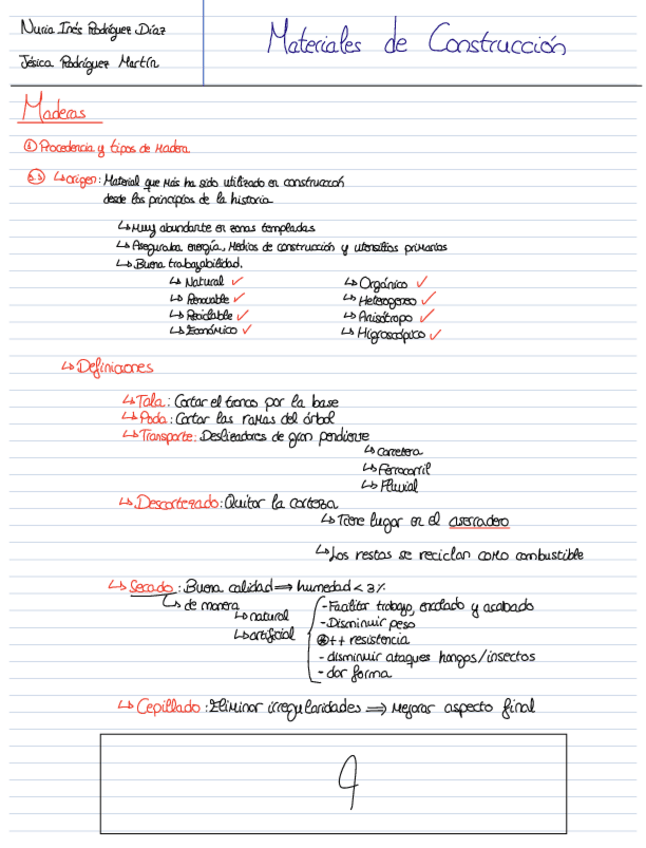 Nuria Inés Rodríguez Díaz
Jésica Rodríguez Martín
Materiales de Construcción
Maderas
① Procedencia y tipos de Madera
↳ origen: Material que más ha sido utilizado en construcción
desde los principios de la historia
↳ Muy abundante en zonas templadas
↳ Aseguraba energía, Medios de construcción y utensilios primarios
↳ Buena trabajabilidad.
↳ Natural ✓ ↳ Orgánico ✓
↳ Renovable ✓ ↳ Heterogeneo ✓
↳ Reciclable ✓ ↳ Anisótropo ✓
↳ Económico ✓ ↳ Higroscópico ✓
↳ Definiciones
↳ Tala: Cortar el tronco por la base
↳ Poda: Cortar las ramas del árbol
↳ Transporte: Deslizadores de gran pendiente
↳ Carretera
↳ Ferrocarril
↳ Fluvial
↳ Descortezado: Quitar la corteza
↳ Tiene lugar en el aserradero
↳ Los restos se reciclan como combustible
↳ Secado: Buena calidad ⟹ humedad < 3%
↳ de manera
↳ natural
↳ artificial
- Facilitar trabajo, encolado y acabado
- Disminuir peso
++ resistencia
- disminuir ataques hongos/insectos
- dar forma
↳ Cepillado: Eliminar irregularidades ⟹ Mejorar aspecto final